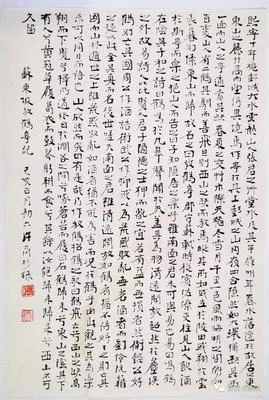 熙寧十年秋彭城大水雲龍山人張君之草堂水及其半扉明年春水落遷於故居之東
東山之麓升高而望得異境焉作亭於其上彭城之山岡嶺四合隱然如大環獨缺其西
一面而山人之亭適當其缺春夏之交草木際天秋冬雪月千里一色風雨晦明之間俯仰
百變山人有二鶴甚馴而善飛旦則望西山之缺而放焉縱其所如或立於陂田或翔於雲
表暮則傃東山而歸故名之曰放鶴亭郡守蘇軾時從賓佐僚吏往見山人飲酒
於斯亭而樂之挹山人而告之曰子知隱居之樂乎雖南面之君未可與易也易曰鳴鶴
在陰其子和之詩曰鶴鳴於九皋聲聞於天蓋其為物清遠閑放超然於塵埃
之外故易詩人以比賢人君子隱德之士狎而玩之宜若有益而無損者然衛懿公好
鶴則亡其國周公作酒誥衛武公作抑戒以為荒惑敗亂無若酒者而劉伶阮籍
之徒以此全其真而名後世嗟夫南面之君雖清遠閑放如鶴者猶不得好好之則亡其
國而山林遁世之士雖荒惑敗亂如酒者猶不能為害而況於鶴乎由此觀之其為樂
未可以同日而語也山人欣然而笑曰有是哉乃作放鶴招鶴之歌曰鶴飛去兮西山之缺高
翔而下覽兮擇所適獨終日於澗谷之間兮啄蒼苔而履白石鶴歸來兮東山之陰其下
有人兮黃冠草履葛衣而鼓琴躬耕而食兮其餘以汝飽歸來歸來兮西山不可以
久留
蘇東坡放鶴亭記